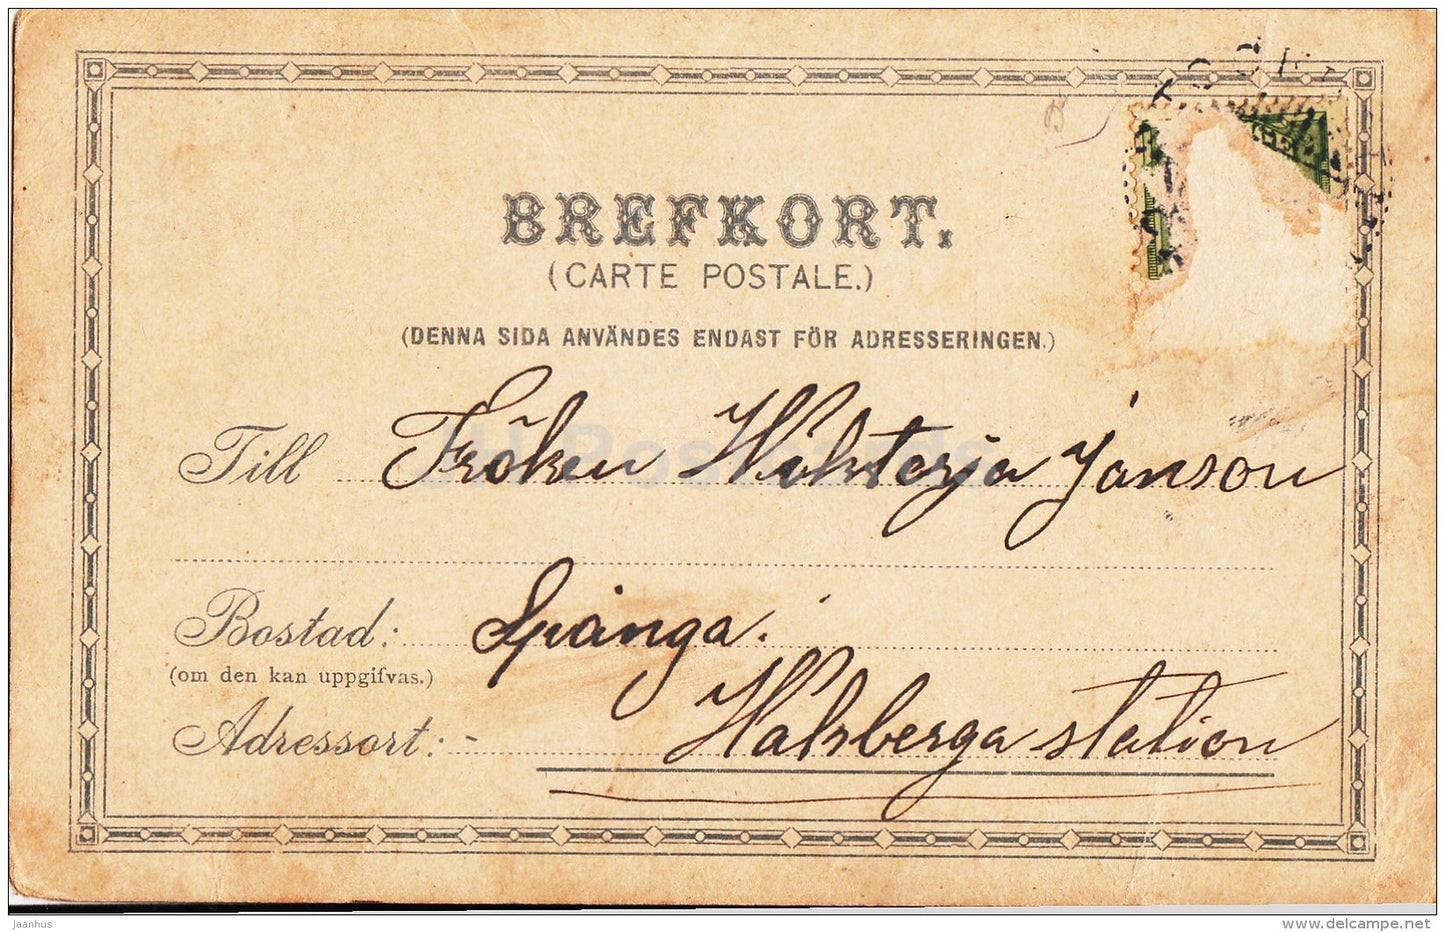 BREFKORT.
(CARTE POSTALE.)
(DENNA SIDA ANVÄNDES ENDAST FÖR ADRESSERINGEN.)
Till Fröken Wiktorja Janson
Bostad: Spånga.
(om den kan uppgifvas.)
Adressort: - Halsberga station
HJ Postcards
jaanhus
delcampe.net